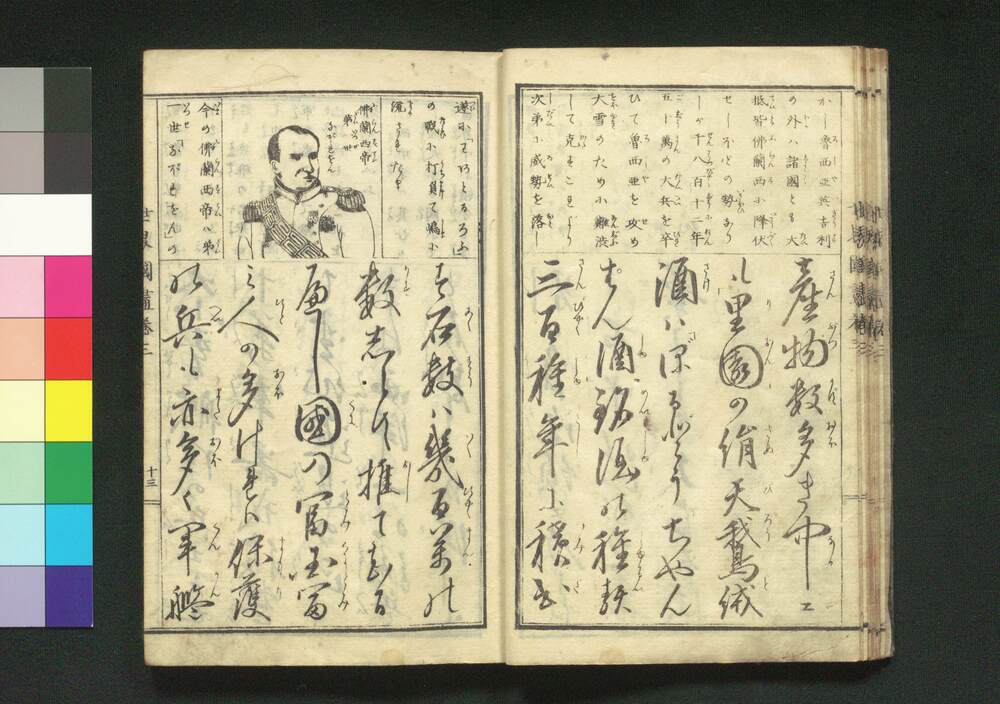 かし魯西亜英吉利
の外ハ諸國とも大
抵皆佛蘭西に降伏
せしほどの勢なり
しが千八百十二年
五十萬の大兵を卒
ひて魯西亜を攻め
大雪のため小難渋
して克 これより
次第に威勢を落し
産物数多き中に
も里園の絹天鵞絨
酒ハぼるどうちやん
ぱん酒銘酒の種類
三百種年に積出
す石数ハ幾百萬の
数志らず推て知る
べし國の冨國冨
み人の多ければ保護
の兵も亦多く軍艦
遂にわあとるろう
の戦に打負て嶋に
流されたり
佛蘭西帝
第一世
なぽれおん
今の佛蘭西帝ハ第
一世なぽれおんの
世界國盡巻三
十三